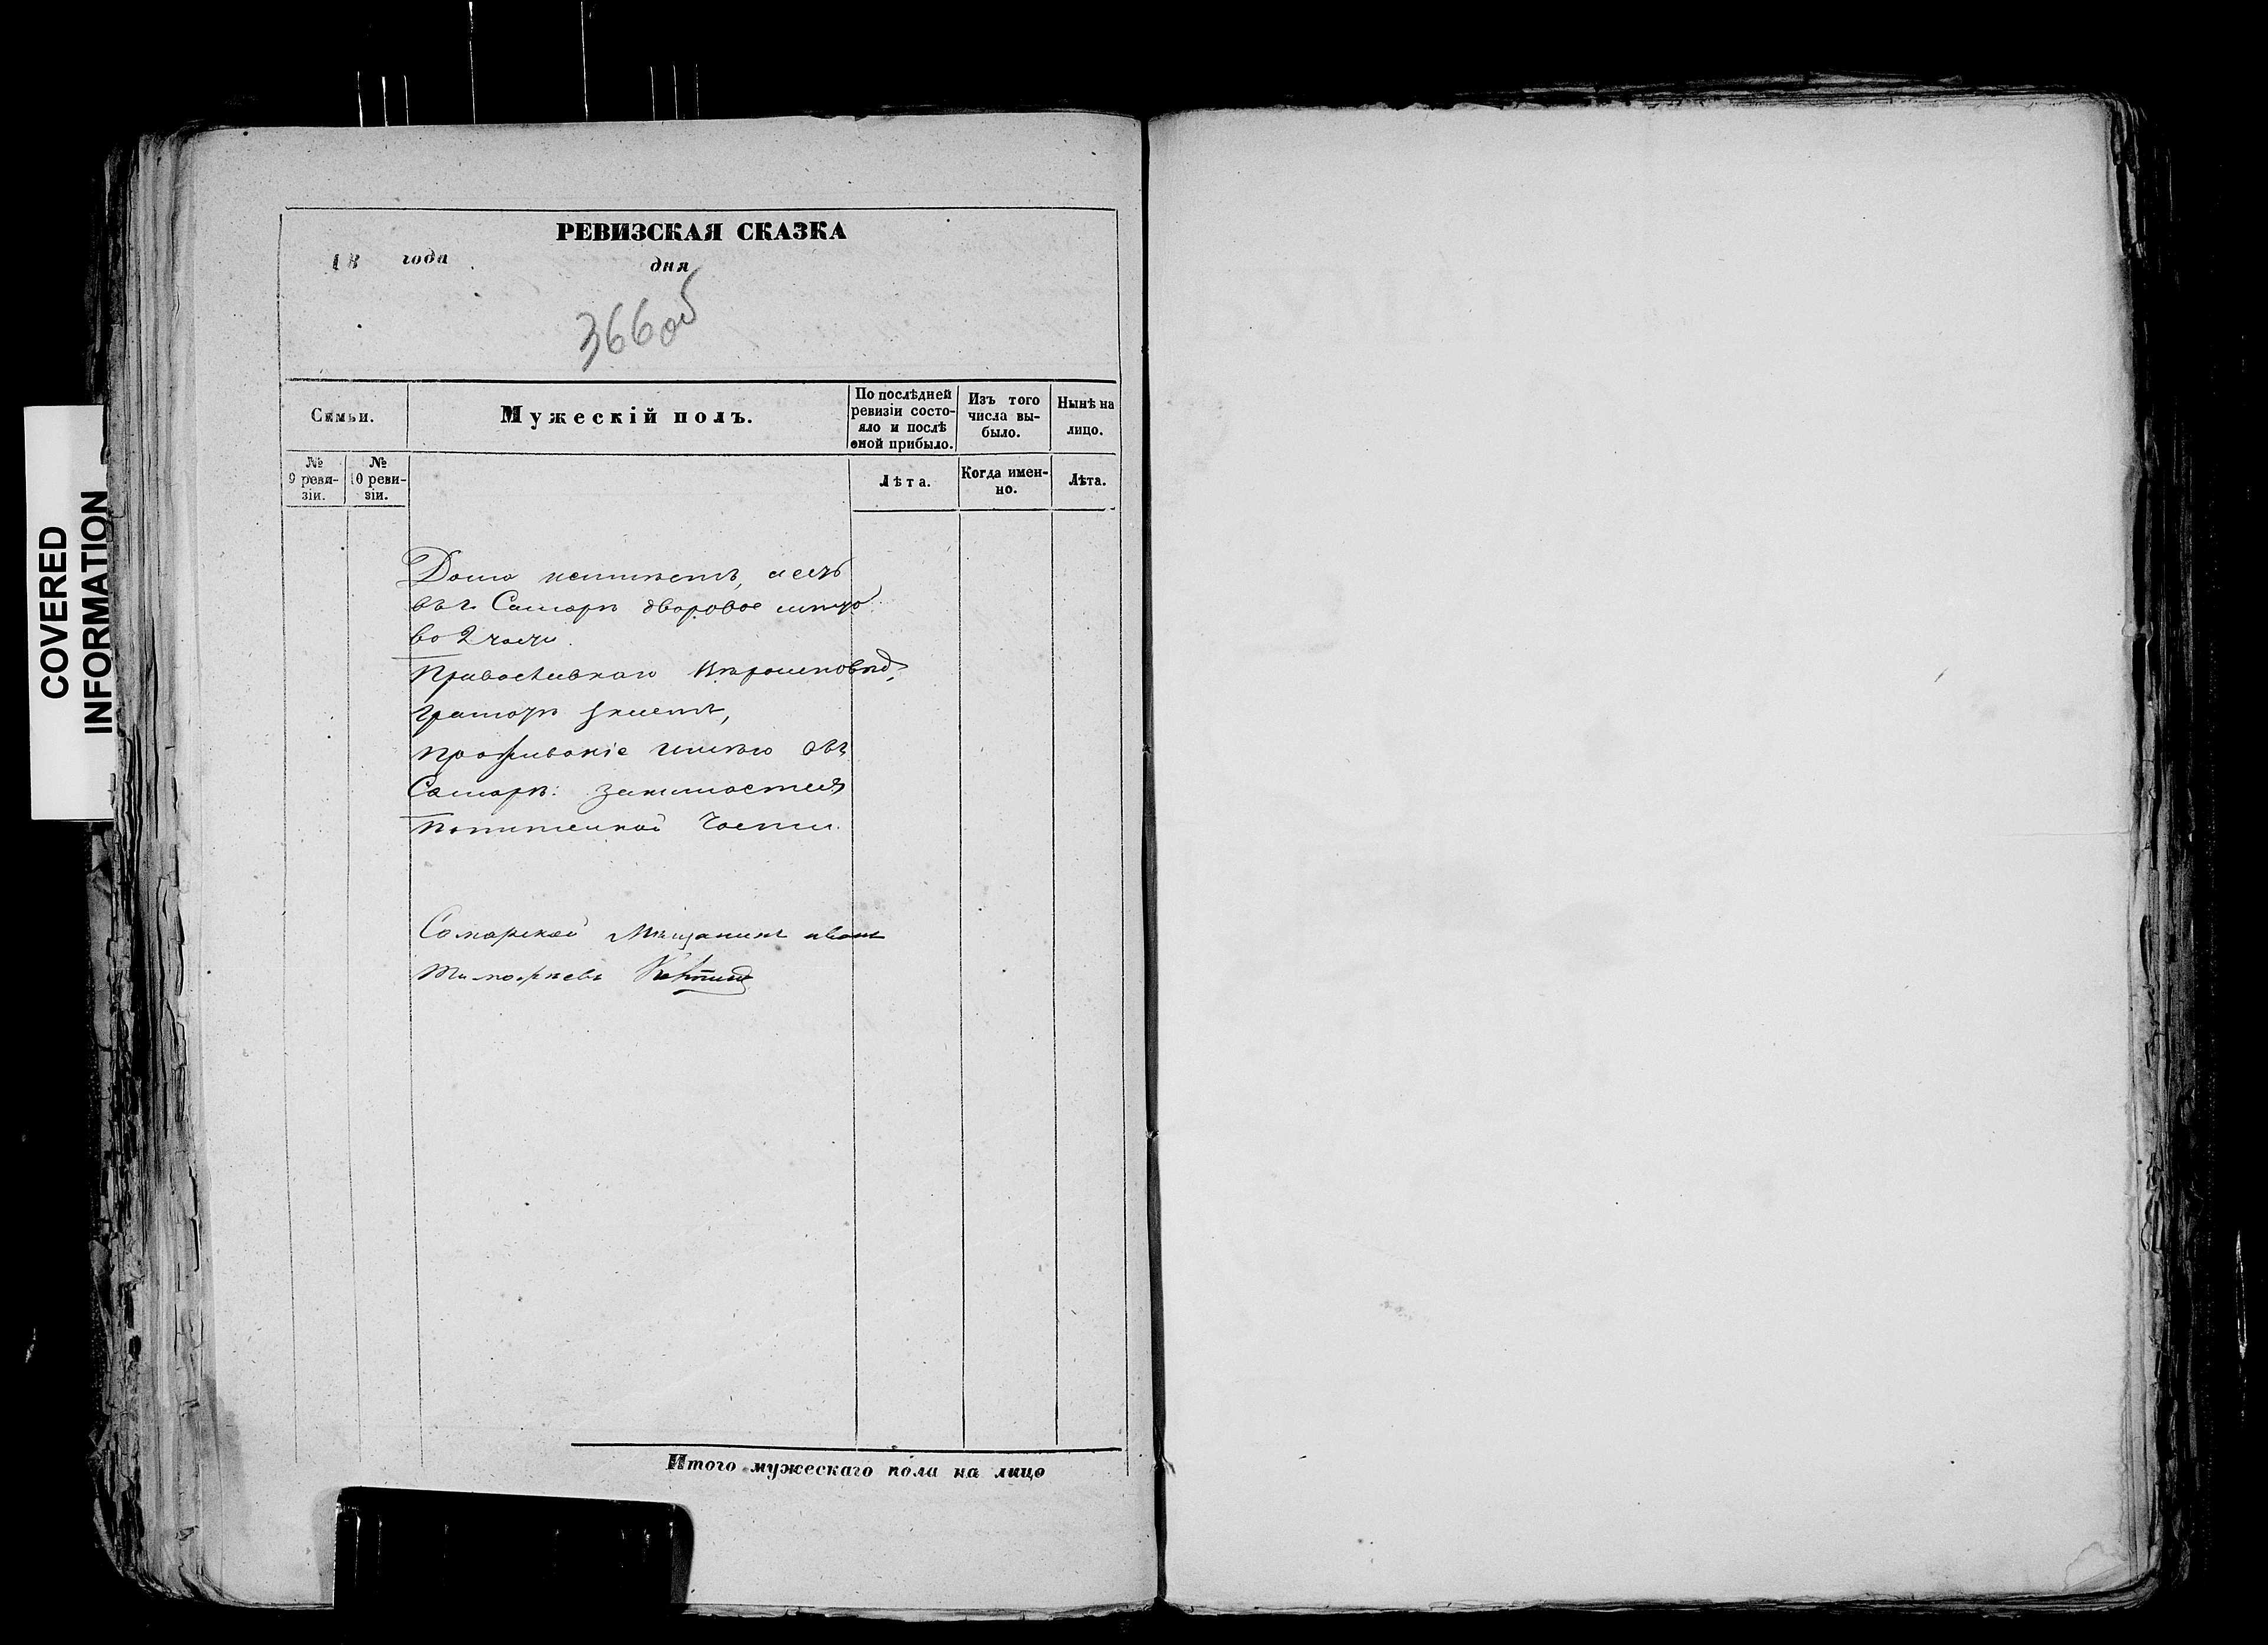 COVERED
INFORMATION
РЕВИЗСКАЯ СКАЗКА
18 года дня
366об
Семьи.
Мужескій полъ.
По послѣдней
ревизіи состо-
яло и послѣ
оной прибыло.
Изъ того
числа вы-
было.
Нынѣ на
лицо.
№
9 реви-
зіи.
№
10 реви-
зіи.
Лѣта.
Когда имен-
но.
Лѣта.
Дома неимѣетъ, а есть
въ г. Самарѣ дворовое мѣсто
во 2 части
Православнаго вѣроисповѣд,
грамотѣ умеетъ,
проживаніе имѣю въ
Самарѣ: занимается
по питейной части
Самарской Мѣщанинъ иванъ
Тимофѣевъ
Итого мужескаго пола на лицо